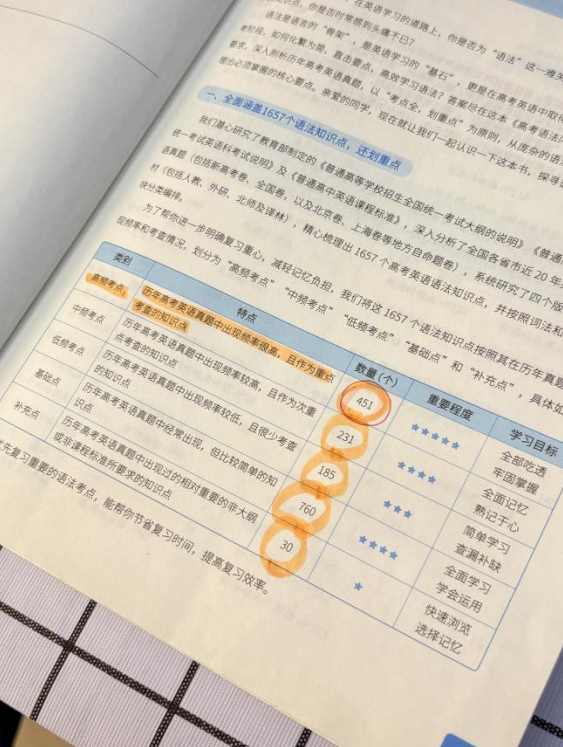 在英语学习的道路上，你是否为“语法”这一难关
知识点，你是否时常感到头痛不已？
语法是语言的“骨架”，是英语学习的“基石”，更是在高考英语中取得
考阶段，如何化繁为简，直击要点，高效学习语法？答案尽在这本《高考语法
要求，深入剖析历年高考英语真题，以“考点全，划重点”为原则，从庞杂的语
理出必须掌握的核心要点。亲爱的同学，现在就让我们一起认识一下这本书，探寻
一、全面涵盖1657个语法知识点，还划重点
我们潜心研究了教育部制定的《普通高等学校招生全国统一考试大纲的说明》《普通
统一考试英语科考试说明》及《普通高中英语课程标准》，深入分析了全国各省市近 20 年
语真题（包括新高考卷、全国卷，以及北京卷、上海卷等地方自命题卷），系统研究了四个版
材（包括人教、外研、北师及译林），精心梳理出 1657 个高考英语语法知识点，并按照词法和
块分类编排。
为了帮你进一步明确复习重心，减轻记忆负担，我们将这 1657 个语法知识点按照其在历年真题
现频率和考查情况，划分为“高频考点”“中频考点”“低频考点”“基础点”和“补充点”，具体如
类别 特点 数量(个) 重要程度 学习目标
高频考点 历年高考英语真题中出现频率很高，且作为重点
考查的知识点 451 ★★★★★ 全部吃透
牢固掌握
中频考点 历年高考英语真题中出现频率较高，且作为次重
点考查的知识点 231 ★★★★ 全面记忆
熟记于心
低频考点 历年高考英语真题中出现频率较低，且很少考查
的知识点 185 ★★★ 简单学习
查漏补缺
基础点 历年高考英语真题中经常出现，但比较简单的知
识点 760 ★★★★ 全面学习
学会运用
补充点 历年高考英语真题中出现过的相对重要的非大纲
或非课程标准所要求的知识点 30 ★ 快速浏览
选择记忆
优先复习重要的语法考点，能帮你节省复习时间，提高复习效率。